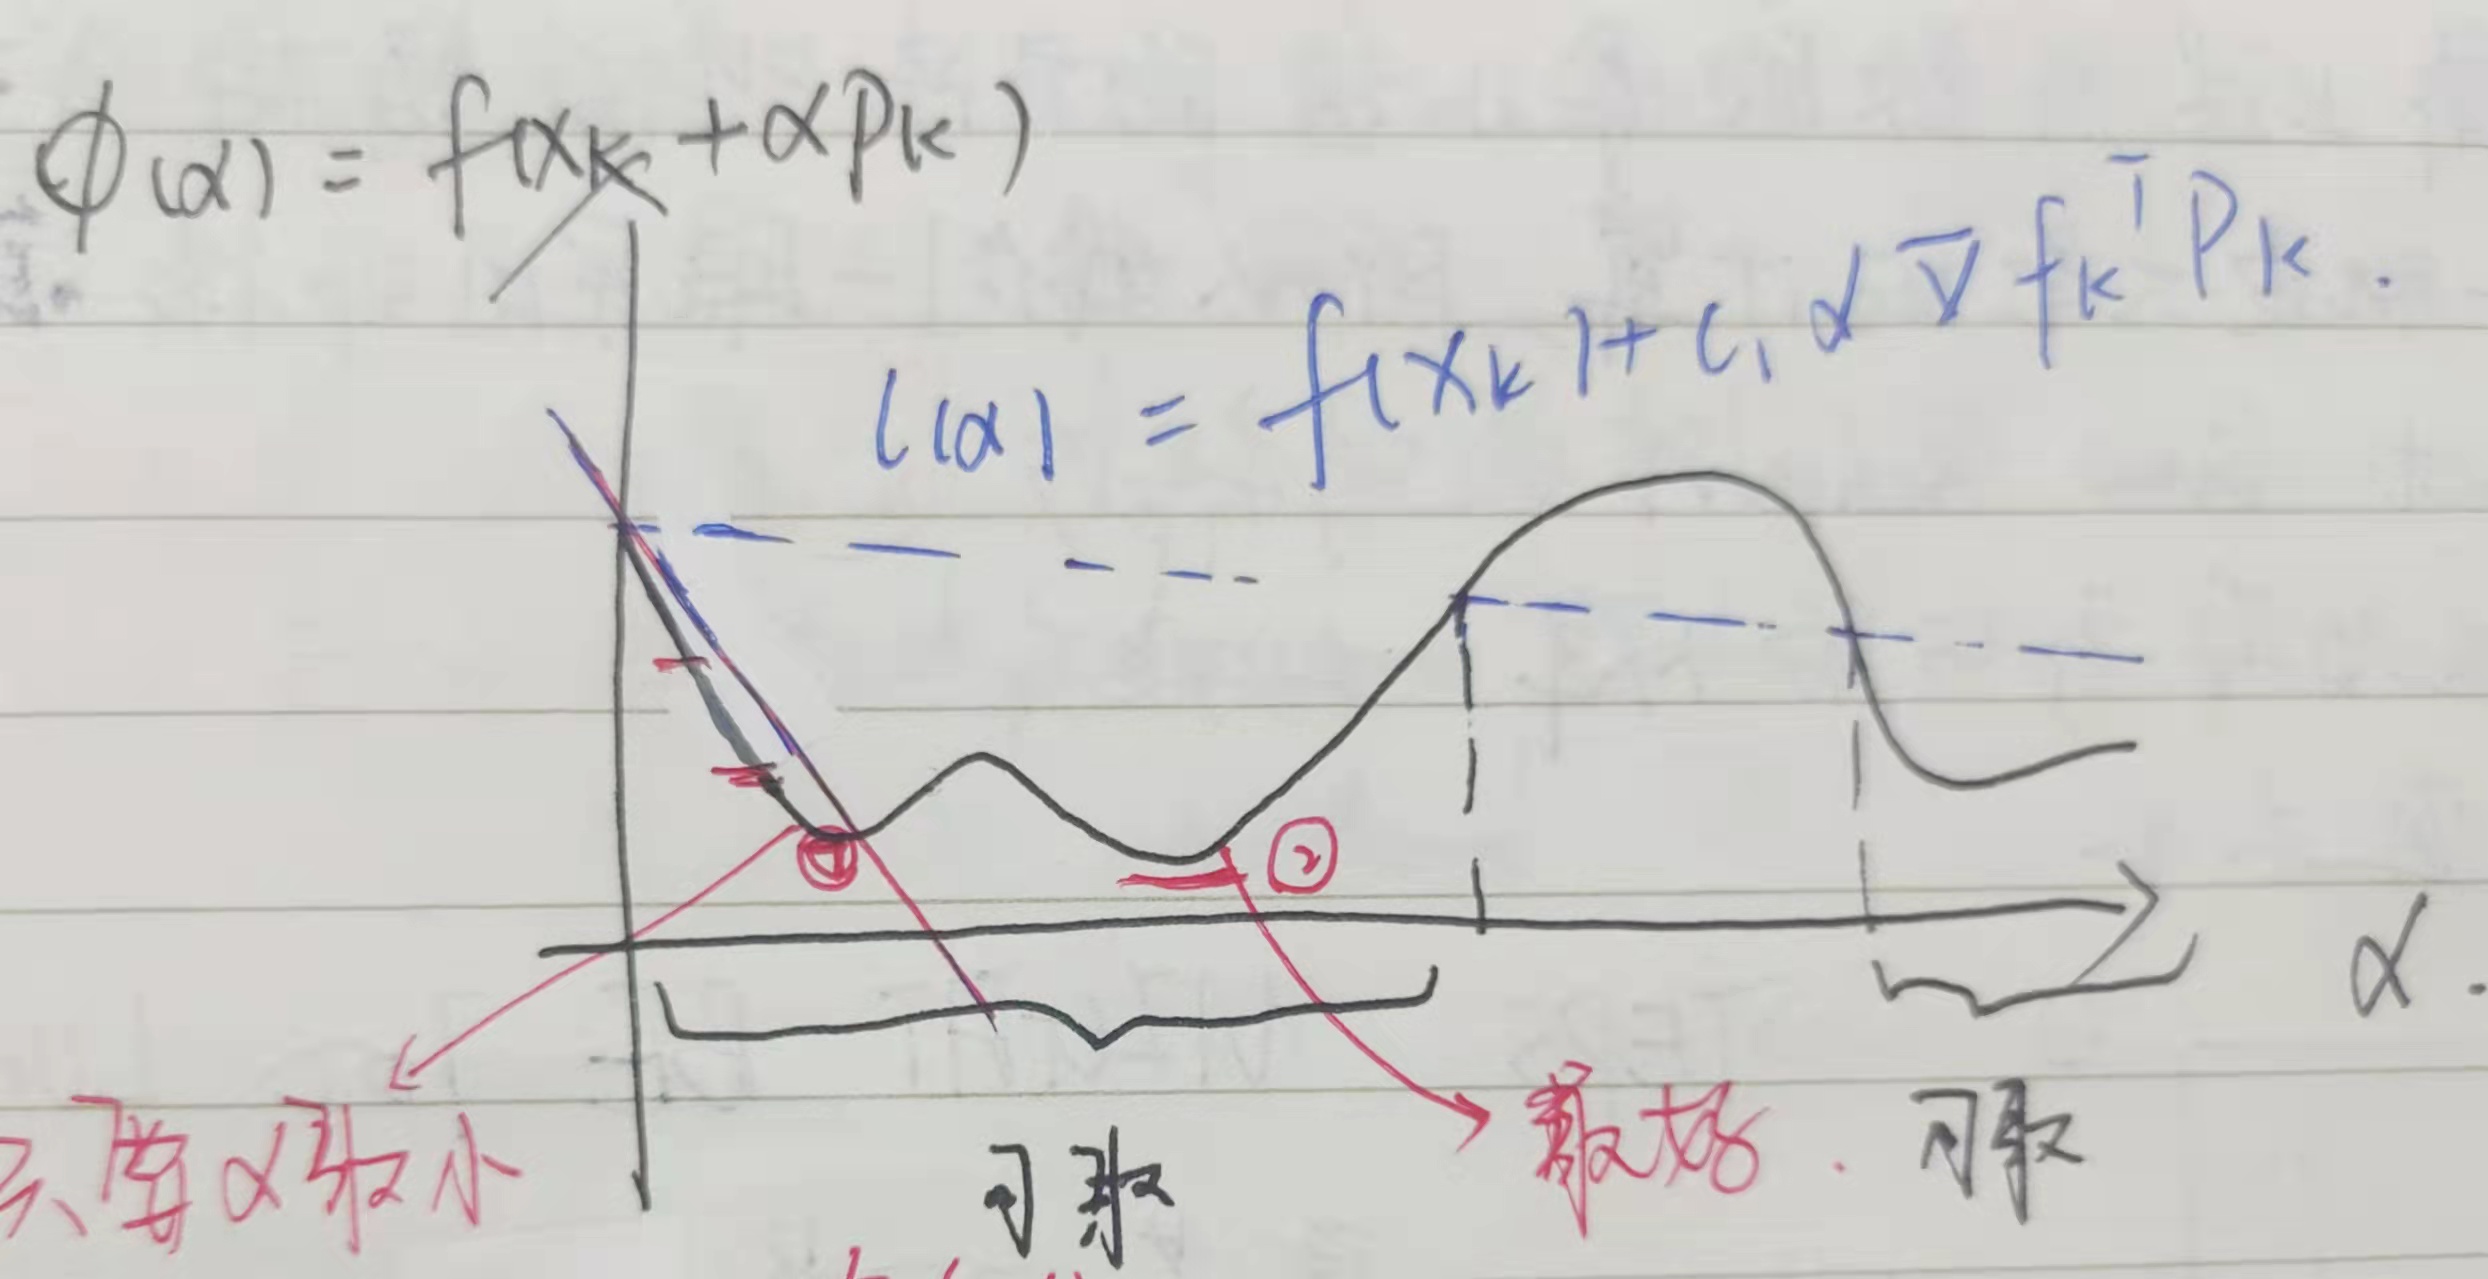 ϕ(α) = f(xk + αPk)
l(α) = f(xk) + c₁ α ∇fkᵀ Pk.
①
②
α.
只要α取小
可取
最好.
可取